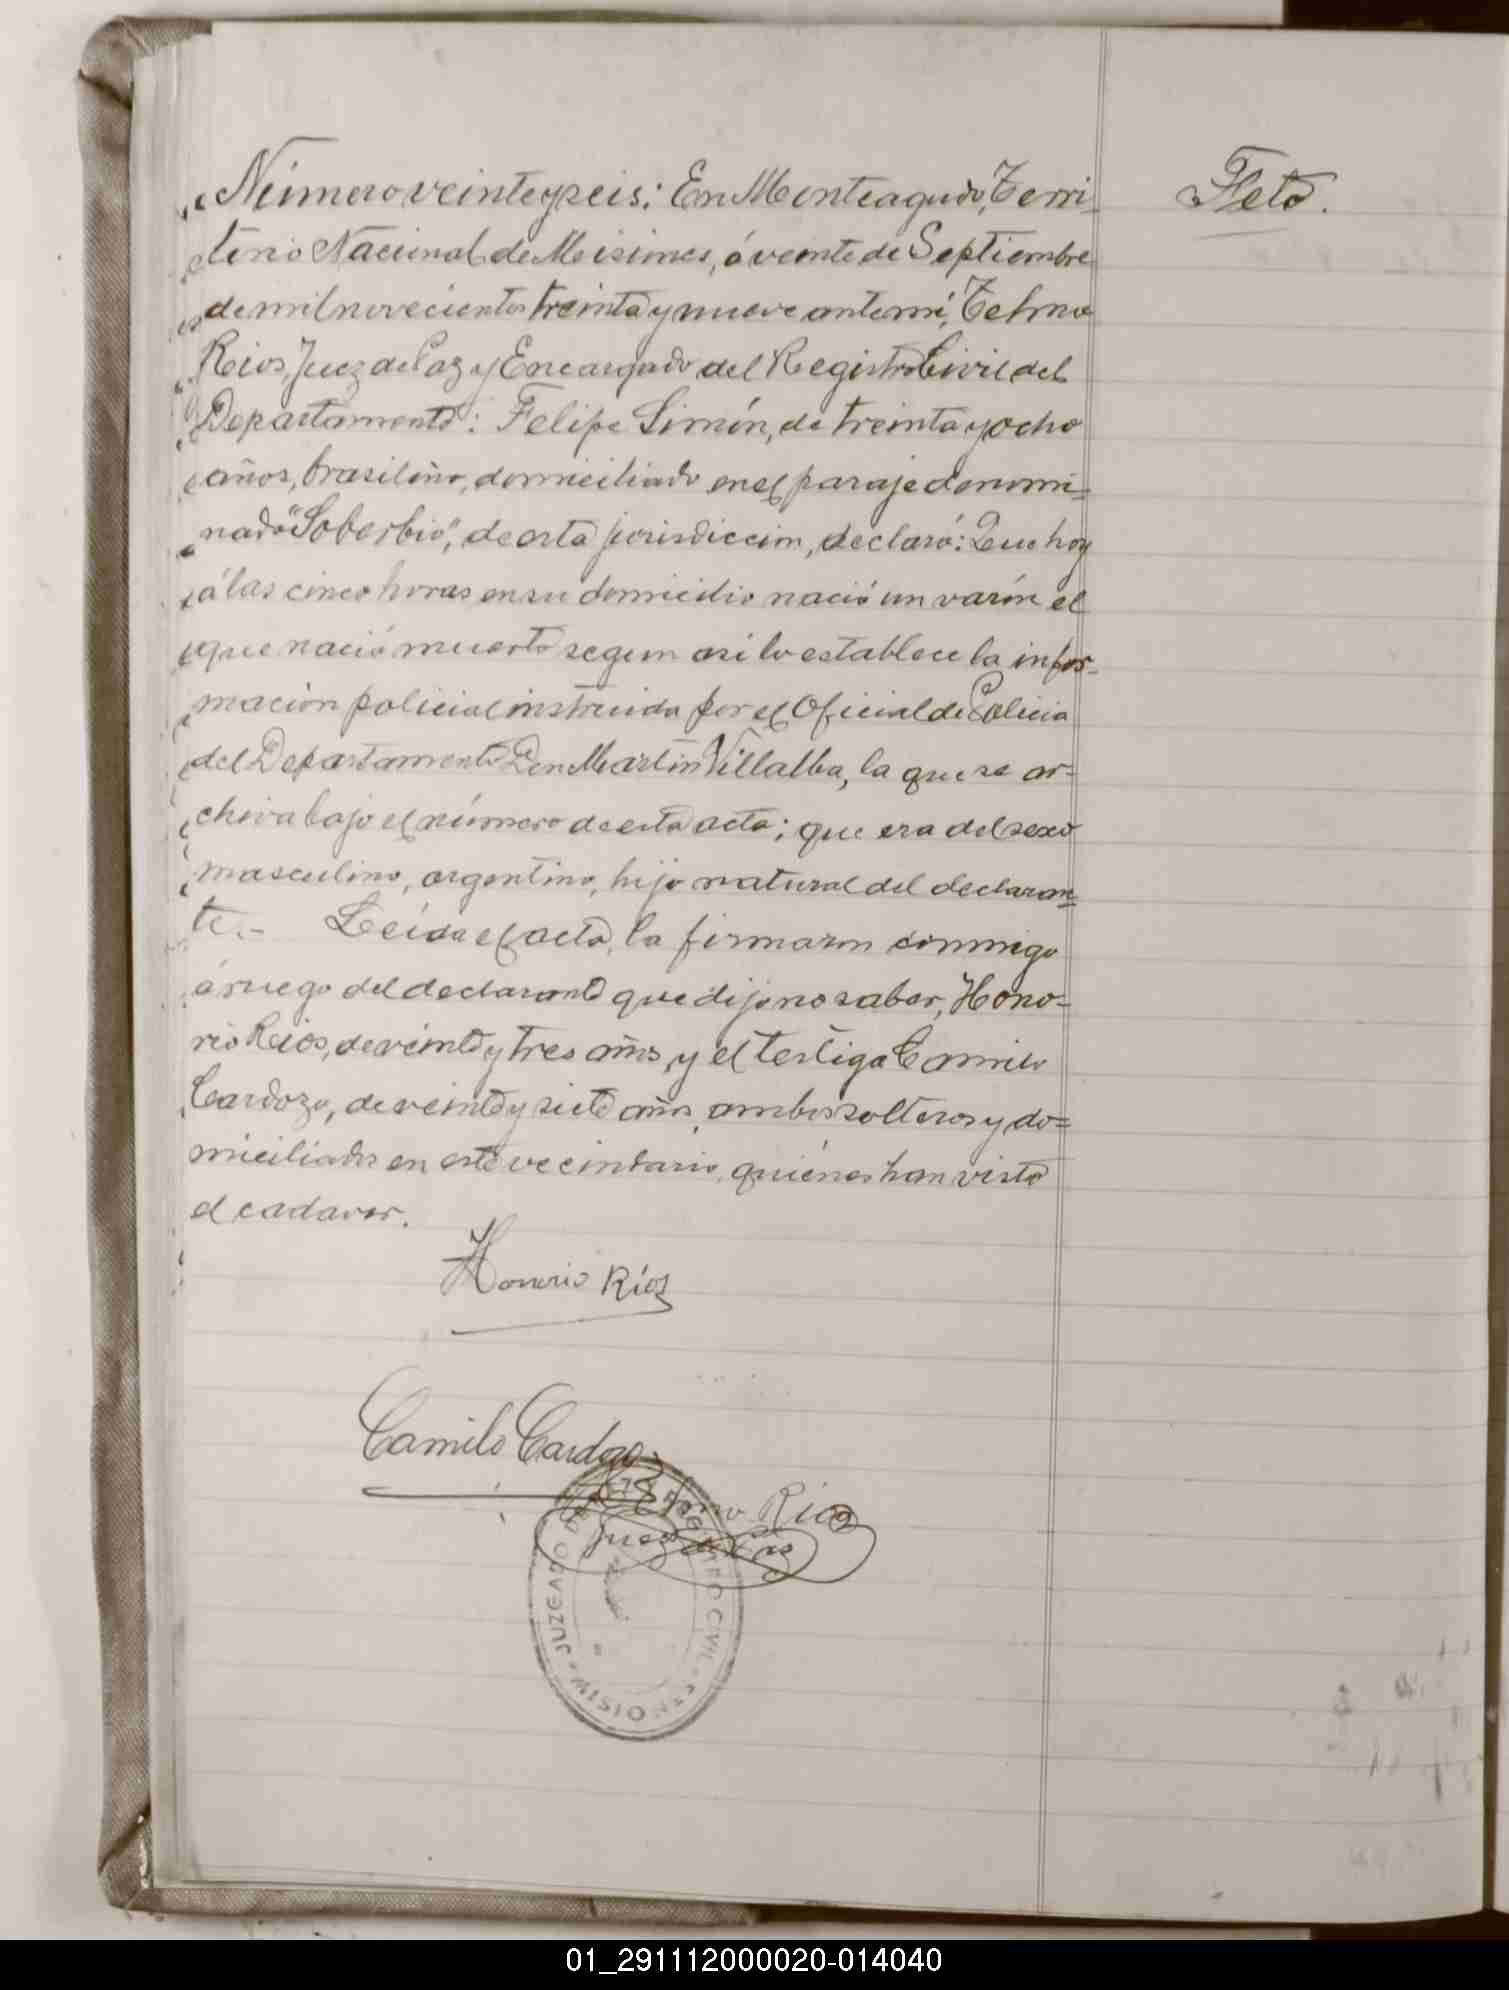 Número veinte y seis: En Monteagudo, Terri-
torio Nacional de Misiones, á veinte de Septiembre
de mil novecientos treinta y nueve ante mí, Telmo
Rios, Juez de Paz y Encargado del Registro Civil del
Departamento: Felipe Simón, de treinta y ocho
años, brasilero, domiciliado en el paraje denomi=
nado "Soberbio", de esta jurisdiccion, declaró: Que hoy
á las cinco horas en su domicilio nació un varón el
que nació muerto segun asi lo establece la infor-
mación policial instruida por el Oficial de Policia
del Departamento Don Martin Villalba, la que se ar-
chiva bajo el número de esta acta; que era del sexo
masculino, argentino, hijo natural del declaran=
te.- Leída el acta, la firmaron conmigo
á ruego del declarante que dijo no saber, Hono-
rio Rios, de veinte y tres años, y el testigo Camilo
Cardozo, de veinte y siete años, ambos solteros y do=
miciliados en este vecindario, quiénes han visto
el cadaver.
Feto.
Honorio Ríos
Camilo Cardozo
Telmo Rios
Juez de Paz
JUZGADO DE PAZ REGISTRO CIVIL
01_291112000020-014040